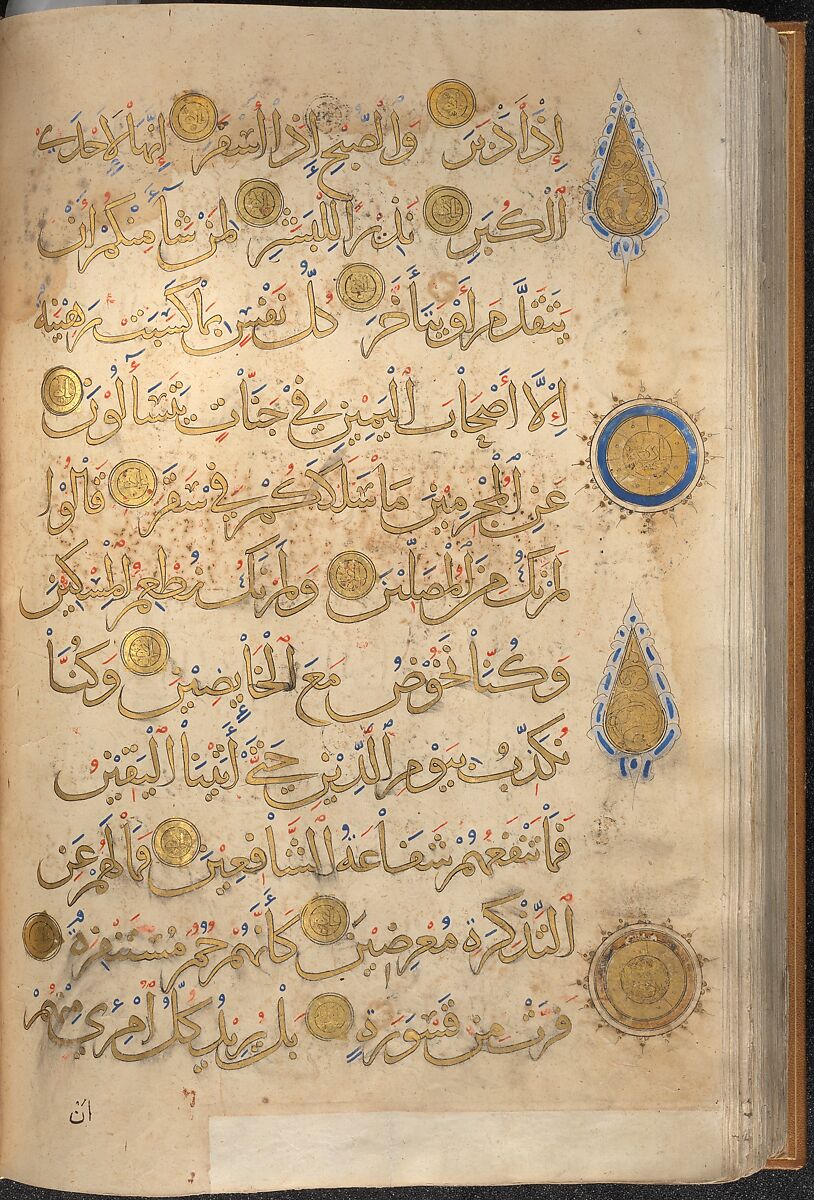 إِذْ أَدْبَرَ وَالصُّبْحِ إِذَا أَسْفَرَ إِنَّهَا لَإِحْدَى
الْكُبَرِ نَذِيرًا لِلْبَشَرِ لِمَنْ شَآءَ مِنْكُمْ أَنْ
يَتَقَدَّمَ أَوْ يَتَأَخَّرَ كُلُّ نَفْسٍ بِمَا كَسَبَتْ رَهِينَةٌ
إِلَّا أَصْحَابَ الْيَمِينِ فِي جَنَّاتٍ يَتَسَآءَلُونَ
عَنِ الْمُجْرِمِينَ مَا سَلَكَكُمْ فِي سَقَرَ قَالُوا
لَمْ نَكُ مِنَ الْمُصَلِّينَ وَلَمْ نَكُ نُطْعِمُ الْمِسْكِينَ
وَكُنَّا نَخُوضُ مَعَ الْخَايِضِينَ وَكُنَّا
نُكَذِّبُ بِيَوْمِ الدِّينِ حَتَّى أَتَيْنَا الْيَقِينُ
فَمَا تَنْفَعُهُمْ شَفَاعَةُ الشَّافِعِينَ فَمَا لَهُمْ عَنِ
التَّذْكِرَةِ مُعْرِضِينَ كَأَنَّهُمْ حُمُرٌ مُسْتَنْفِرَةٌ
فَرَّتْ مِنْ قَسْوَرَةٍ بَلْ يُرِيدُ كُلُّ امْرِئٍ مِنْهُمْ
ان